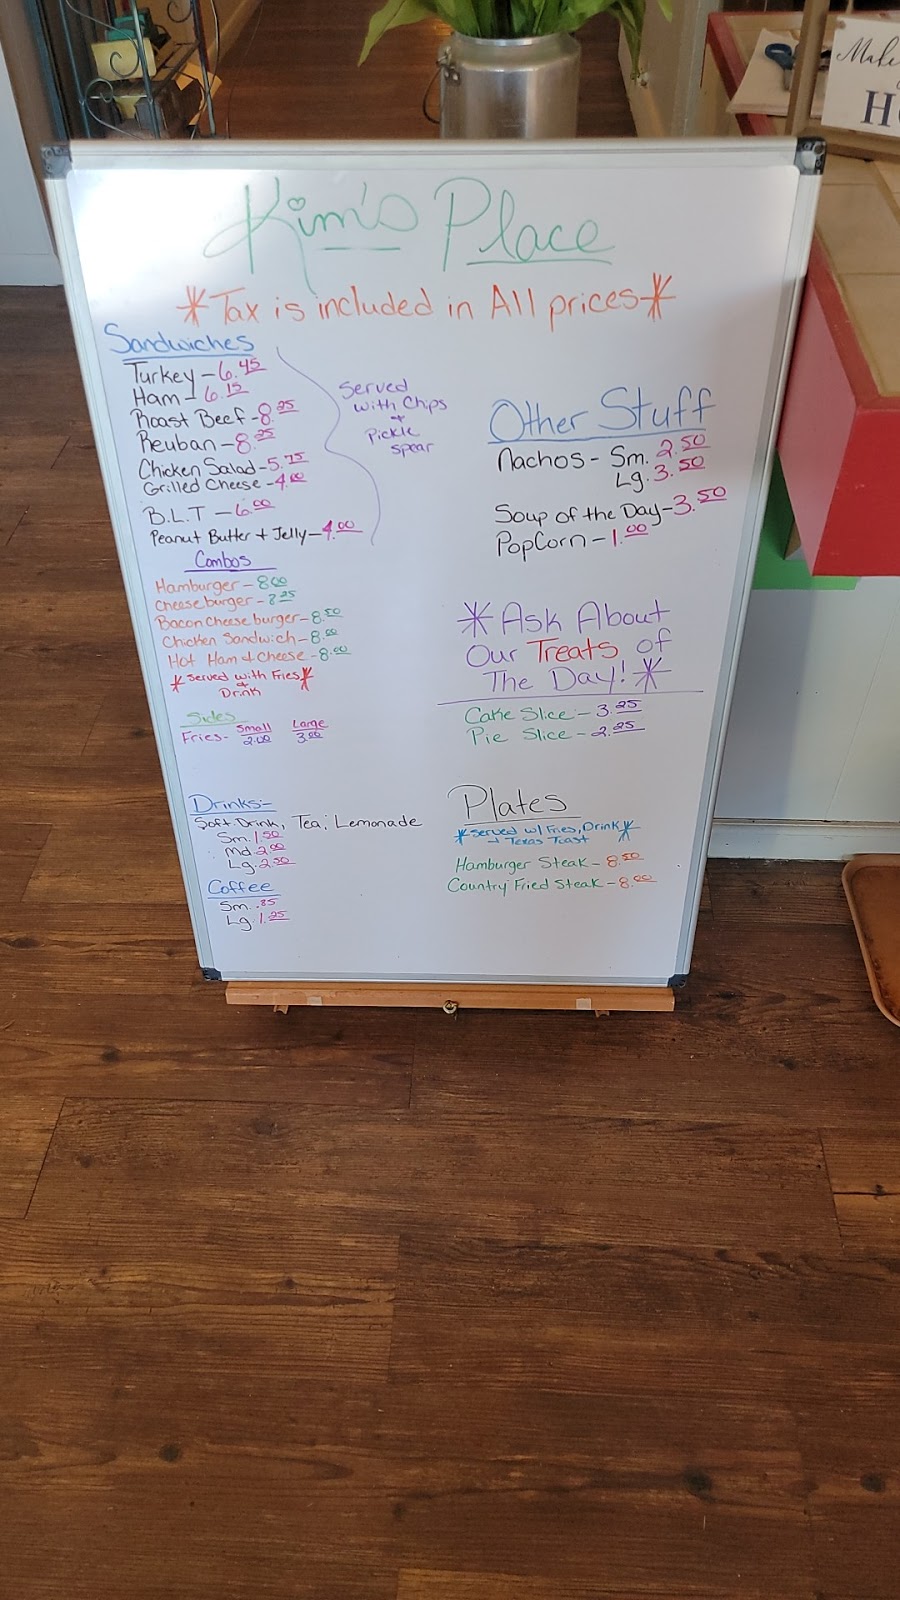 Kim's Place
*Tax is included in All prices*
Sandwiches
Turkey - 6.45
Ham - 6.15
Roast Beef - 8.25
Reuban - 8.25
Chicken Salad - 5.75
Grilled Cheese - 4.00
B.L.T - 6.00
Peanut Butter + Jelly - 4.00
Served
with Chips
+
Pickle
spear
Combos
Hamburger - 8.00
Cheeseburger - 8.25
Bacon Cheeseburger - 8.50
Chicken Sandwich - 8.00
Hot Ham + Cheese - 8.00
*served with Fries*
+
Drink
Sides
Fries - Small Large
2.00 3.00
Drinks:-
Soft Drink, Tea, Lemonade
Sm. 1.50
Md. 2.00
Lg. 2.50
Coffee
Sm. .85
Lg. 1.25
Other Stuff
Nachos - Sm. 2.50
Lg. 3.50
Soup of the Day - 3.50
PopCorn - 1.00
*Ask About
Our Treats of
The Day!*
Cake Slice - 3.25
Pie Slice - 2.25
Plates
*served w/ Fries, Drink*
+ Texas Toast
Hamburger Steak - 8.50
Country Fried Steak - 8.00